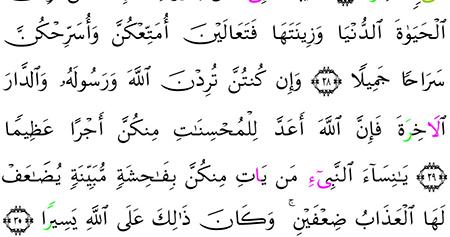 الْحَيَوٰةَ الدُّنْيَا وَزِينَتَهَا فَتَعَالَيْنَ أُمَتِّعْكُنَّ وَأُسَرِّحْكُنَّ
سَرَاحًا جَمِيلًا ٢٨ وَإِن كُنتُنَّ تُرِدْنَ اللَّهَ وَرَسُولَهُۥ وَالدَّارَ
الَاخِرَةَ فَإِنَّ اللَّهَ أَعَدَّ لِلْمُحْسِنَٰتِ مِنكُنَّ أَجْرًا عَظِيمًا
٢٩ يَٰنِسَآءَ النَّبِىٓءِ مَن يَاتِ مِنكُنَّ بِفَٰحِشَةٍ مُّبَيِّنَةٍ يُضَٰعَفْ
لَهَا الْعَذَابُ ضِعْفَيْنِ ۚ وَكَانَ ذَٰلِكَ عَلَى اللَّهِ يَسِيرًا ٣٠